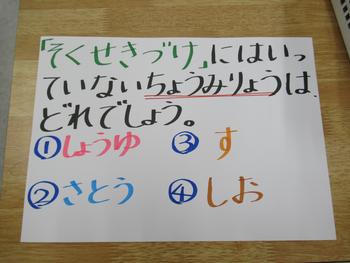 「そくせきづけ」にはいっ
ていないちょうみりょうは、
どれでしょう。
①しょうゆ ③す
②さとう ④しお